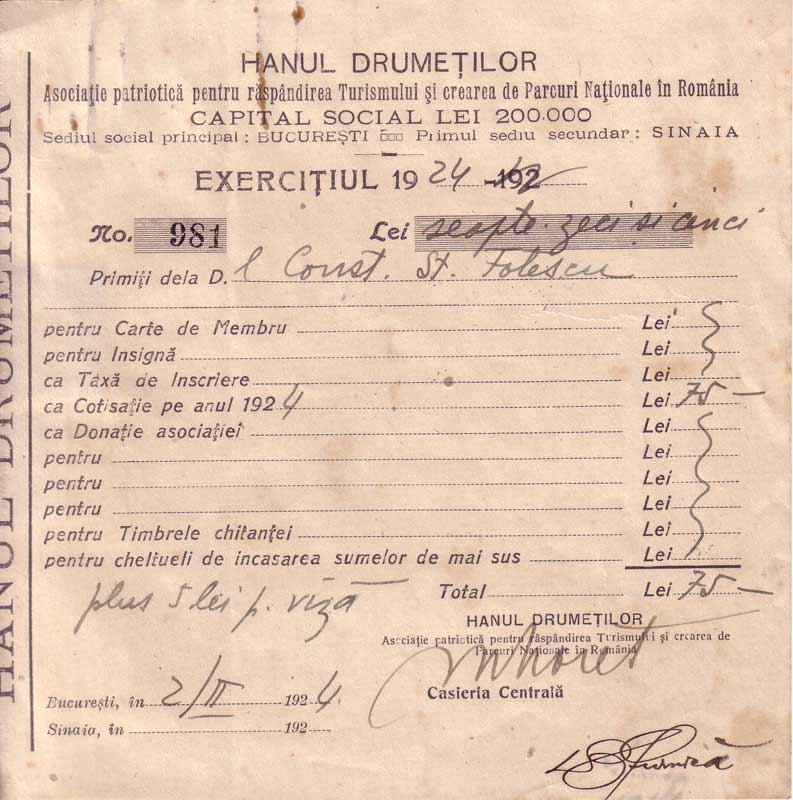 HANUL DRUMEȚILOR
HANUL DRUMEȚILOR
Asociație patriotică pentru răspândirea Turismului și crearea de Parcuri Naționale în România
CAPITAL SOCIAL LEI 200.000
Sediul social principal: BUCUREȘTI Primul sediu secundar: SINAIA
EXERCIȚIUL 1924 -192
No. 981 Lei șeapte zeci si cinci
Primiți dela D. l Const. St. Folescu
pentru Carte de Membru Lei
pentru Insignă Lei
ca Taxă de Inscriere Lei
ca Cotisație pe anul 1924 Lei 75 —
ca Donație asociației Lei
pentru Lei
pentru Lei
pentru Lei
pentru Timbrele chitanței Lei
pentru cheltueli de incasarea sumelor de mai sus Lei
Total Lei 75 —
plus 5 lei p. viză
HANUL DRUMEȚILOR
Asociație patriotică pentru răspândirea Turismului și crearea de
Parcuri Naționale în România
Casieria Centrală
București, în 2/II 1924.
Sinaia, în 192